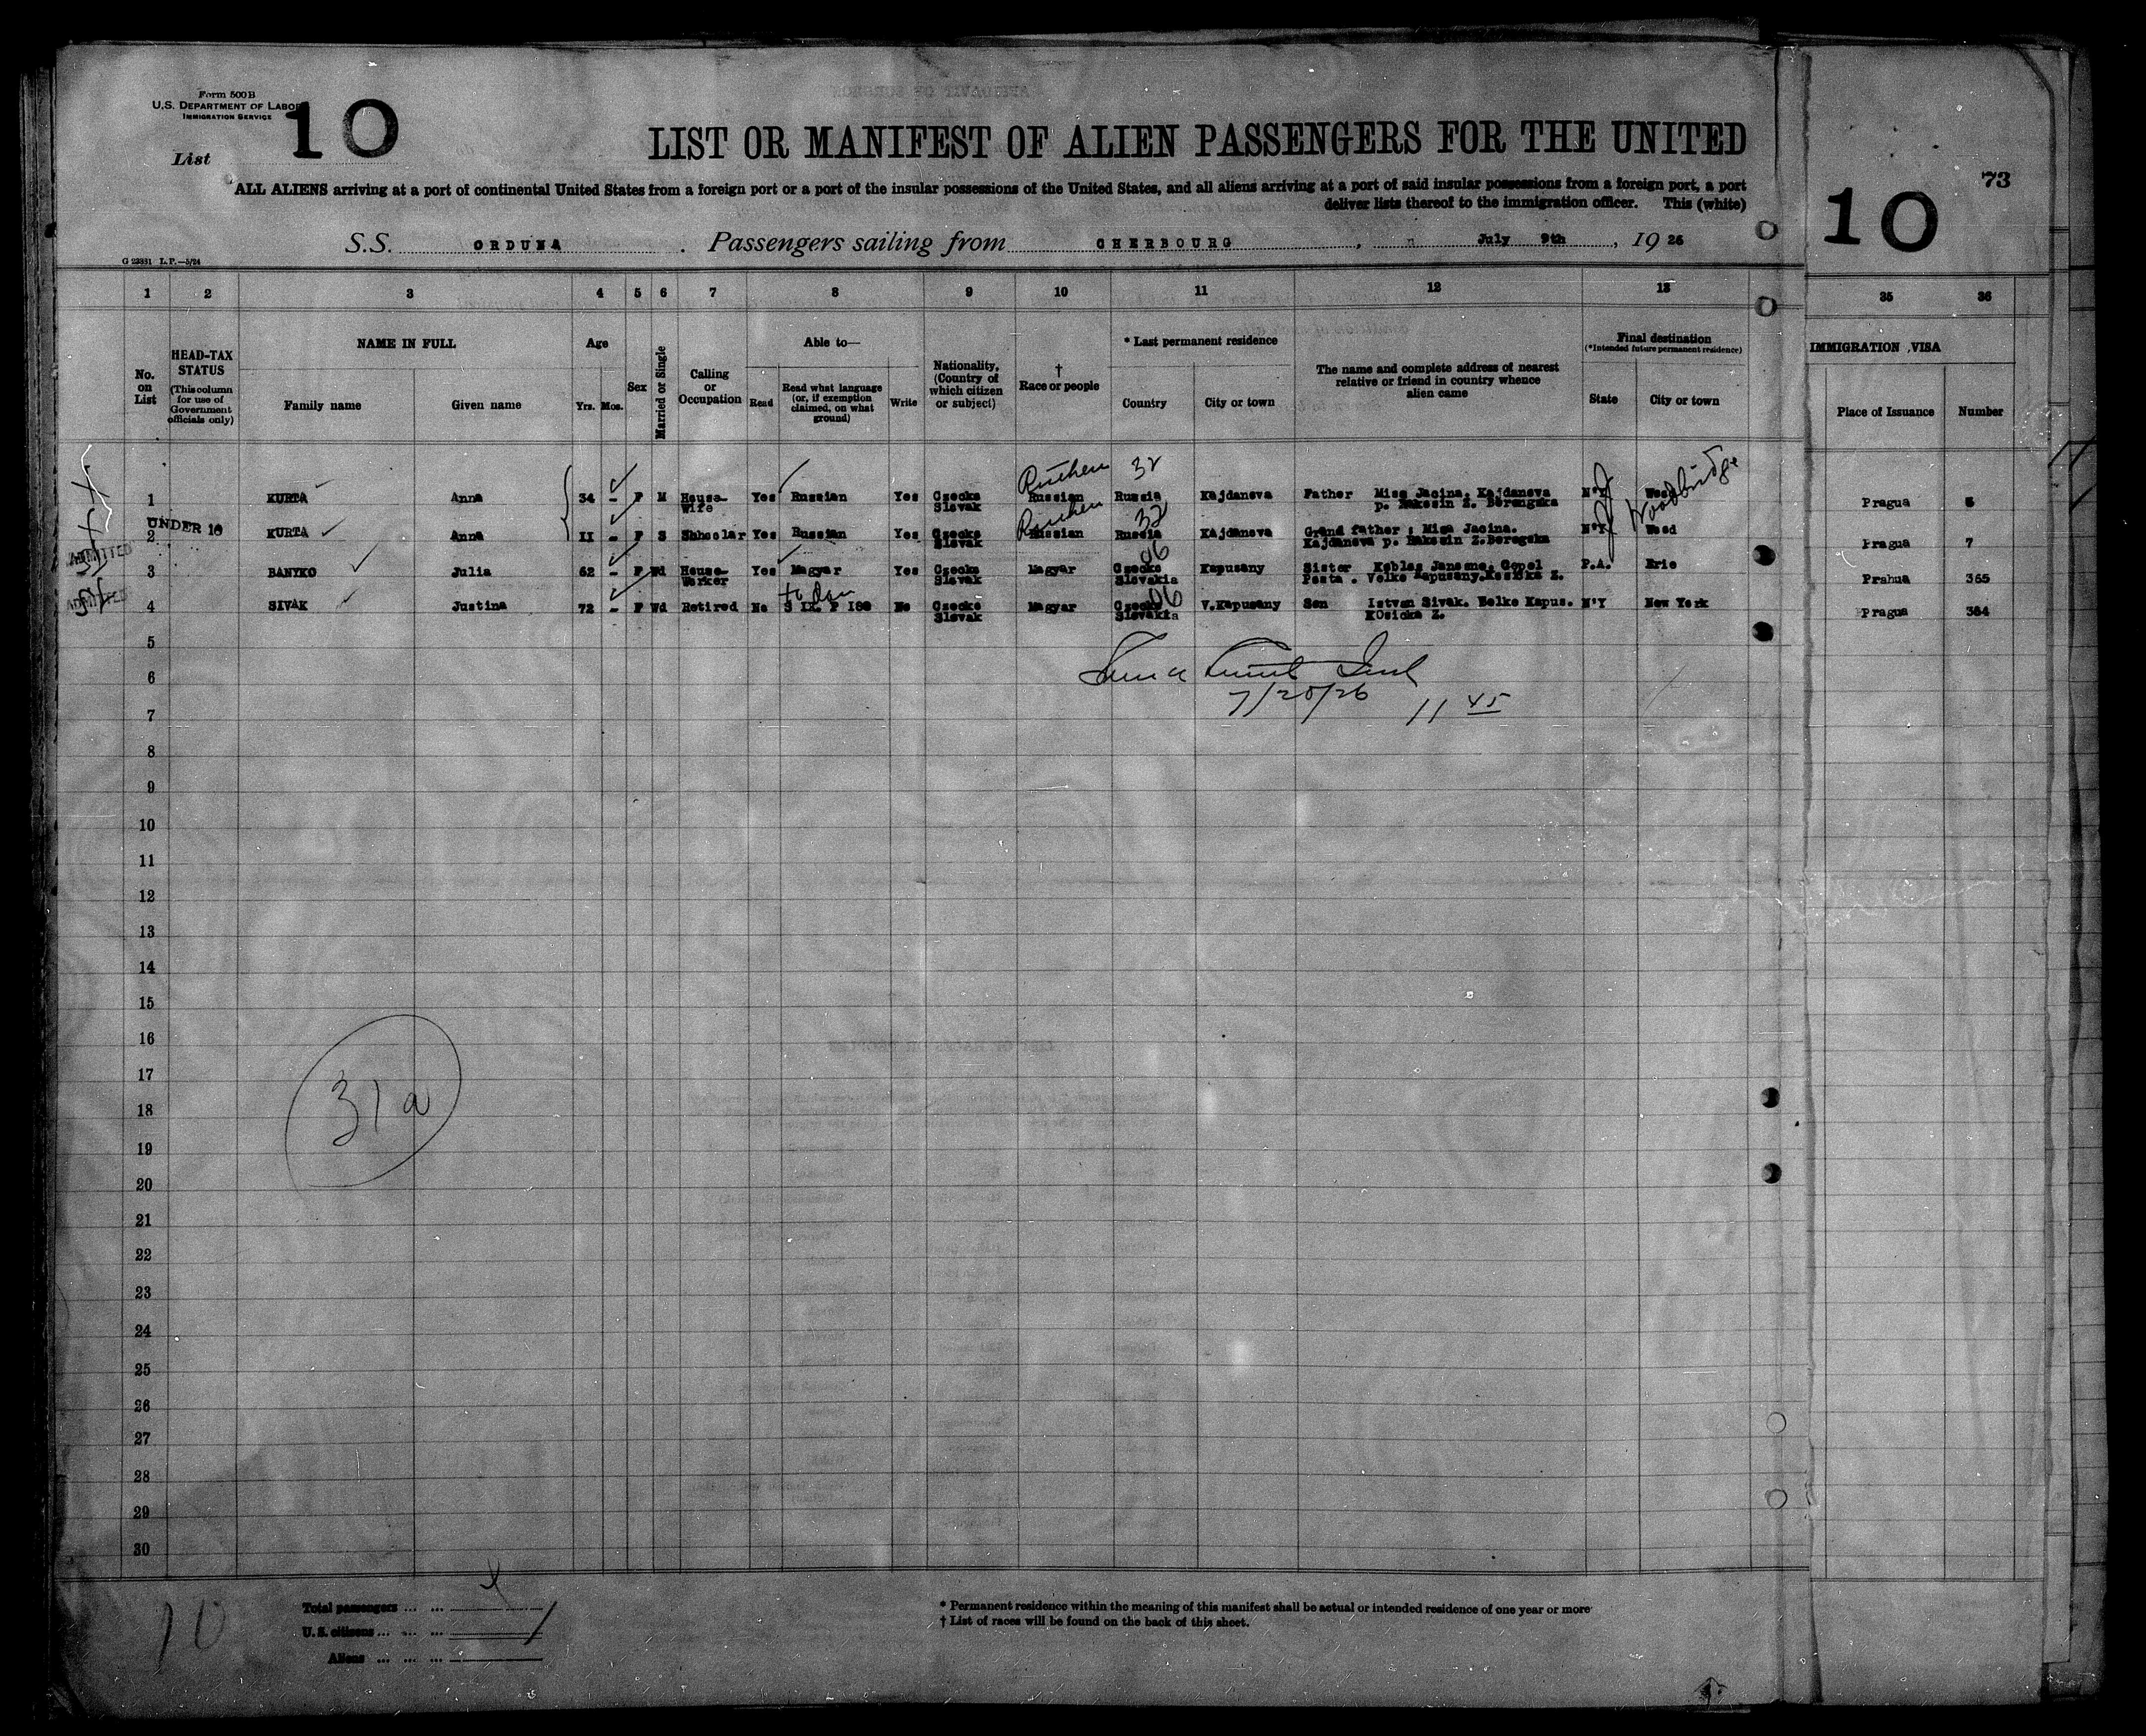 Form 500B
U.S. DEPARTMENT OF LABOR
IMMIGRATION SERVICE
List 10
LIST OR MANIFEST OF ALIEN PASSENGERS FOR THE UNITED
ALL ALIENS arriving at a port of continental United States from a foreign port or a port of the insular possessions of the United States, and all aliens arriving at a port of said insular possessions from a foreign port, a port
deliver lists thereof to the immigration officer. This (white)
10 73
S.S. ORDUNA . Passengers sailing from CHERBOURG , July 9th , 19 26
G 23331 L.P.—5/24
1 2 3 4 5 6 7 8 9 10 11 12 13 35 36
No. on List
HEAD-TAX STATUS
(This column for use of Government officials only)
NAME IN FULL
Family name Given name
Age
Yrs. Mos.
Sex
Married or Single
Calling or Occupation
Able to—
Read
Read what language (or, if exemption claimed, on what ground)
Write
Nationality, (Country of which citizen or subject)
† Race or people
* Last permanent residence
Country City or town
The name and complete address of nearest relative or friend in country whence alien came
Final destination
(*Intended future permanent residence)
State City or town
IMMIGRATION VISA
Place of Issuance Number
Ruthen 32
1 KURTA Anna 34 - F M House- Yes Russian Yes Czecho Russian Russia Kajdanova Father Misa Jacina. Kajdanova N.J. Woodbridge Pragua 5
wife Slovak
UNDER 16
Ruthen 32
2 KURTA Anna II - F S Shhoolar Yes Russian Yes Czecho Russian Russia Kajdanova Grand father : Misa Jacina. N'Y Wood Pragua 7
Slovak Kajdanova p. Rakosin Z.Beregska
ADMITTED
06
3 BANYKO Julia 62 - F Wd House- Yes Magyar Yes Czecho Magyar Czecho Kapusany Sister P.A. Erie Prahua 365
Worker Slovak Slovakia
ADMITTED
06
4 SIVAK Justina 72 - F Wd Retired No No Czecho Magyar Czecho V.Kapusany Son Istvan Sivak. Belke Kapus. N'Y New York Pragua 364
Slovak Slovakia KOsicka Z.
5
6
7/20/26 11 45
7
8
9
10
11
12
13
14
15
16
17
31a
18
19
20
21
22
23
24
25
26
27
28
29
30
10
Total passengers ... ...
U.S. citizens ... ... ...
Aliens ... ... ...
* Permanent residence within the meaning of this manifest shall be actual or intended residence of one year or more
† List of races will be found on the back of this sheet.